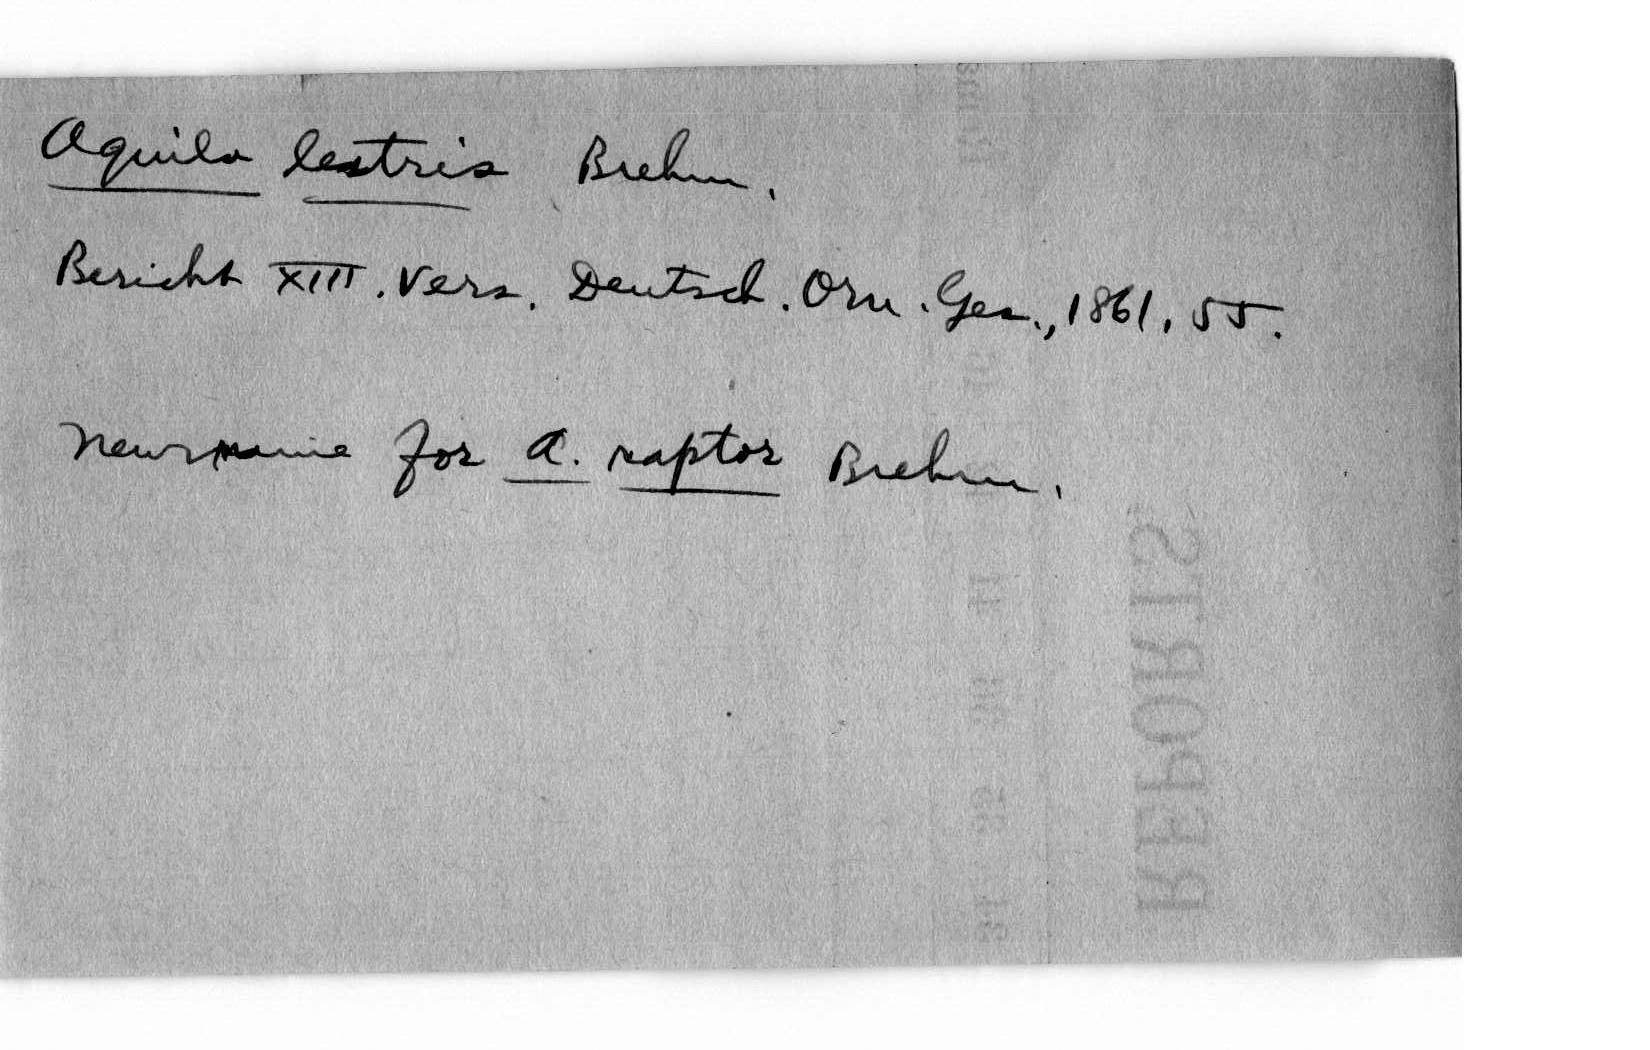 Aquila lestris Brehm.
Bericht XIII. Vers. Deutsch. Orn. Ges., 1861, 55.
New name for A. raptor Brehm.
REPORTS